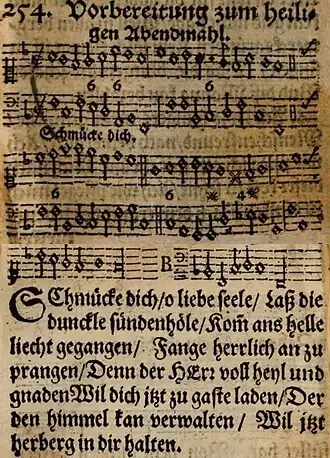 254. Vorbereitung zum heili-
gen Abendmahl.
6 6
Schmücke dich.
6 6 4
B.
SChmücke dich/o liebe seele/ Laß die
dunckle sündenhöle/Kom̃ ans helle
liecht gegangen/ Fange herrlich an zu
prangen/Denn der HErr voll heyl und
gnadenWil dich jtzt zu gaste laden/Der
den himmel kan verwalten/ Wil jtzt
herberg in dir halten.